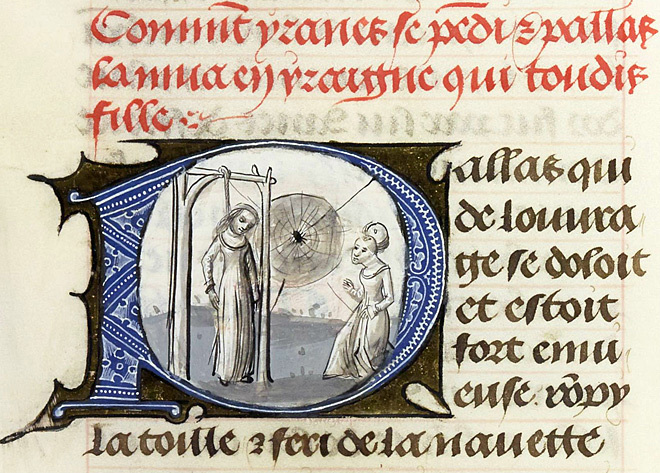 Comment yranes se pendi & pallas
la mua en yraigne qui toudis
fille
Pallas qui
de louura
ge se doloit
et estoit
fort emu
euse. rōpy
la toille & feri de la nauette